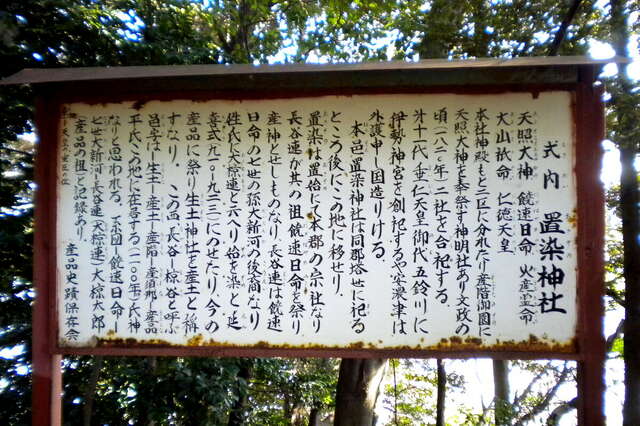 式内 置染神社
天照大神 饒速日命 火産霊命
大山祇命 仁徳天皇
本社神殿もと二区に分れたり産揩御園に
天照大神を奉祭す神明社あり文政の
頃(一八二〇年)二社を合祀する。
第十一代 垂仁天皇御代 五鈴川に
伊勢神宮を創祀するや安濃津は
外護申し国造りける。
本邑置染神社は同郡塔世に祀る
ところ後にこの地に移せり。
置染は置始にて本郡の宗社なり
長谷連が其の祖饒速日命を祭り
産神とせしものなり、長谷連は饒速
日命の七世の孫大新河の後裔なり
姓氏に大椋連と六へり始を染と 延
喜式九一〇~九二三にのせたり、今の
産品に祭り生土神社を産土と称
すなり、この西 長谷 椋谷と呼ぶ
邑字は―生土―産土―産揩―産須那―産品
平氏この地に在営する(一一〇〇年)氏神
なりと思われる、系図―饒速日命―
七世大新河―長谷連(大椋連)大椋大郎
産品の祖と記録あり。 産品史蹟保存会